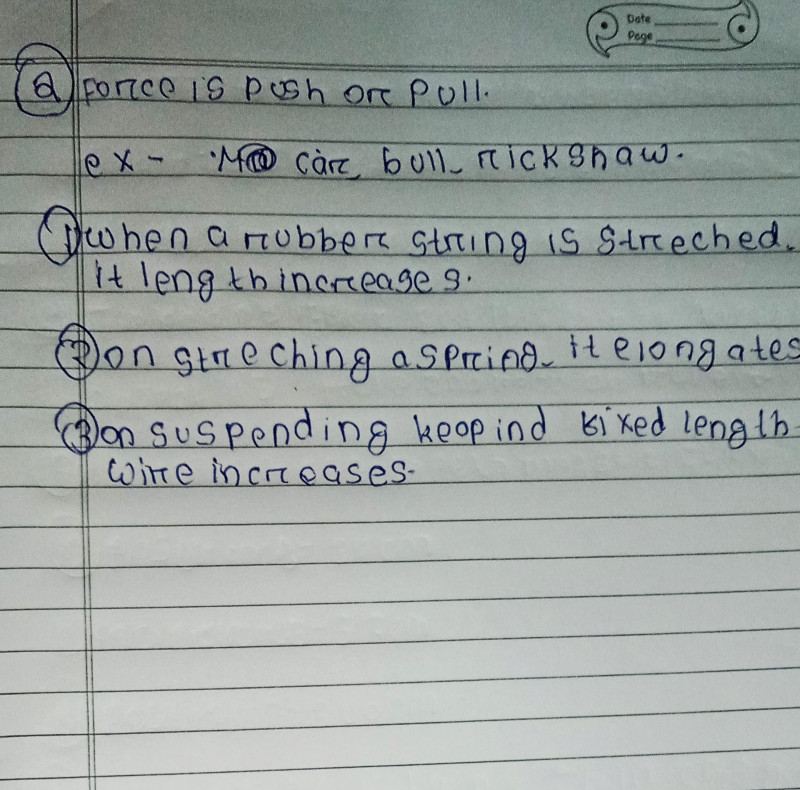 Date
Page
Q force is push or pull.
ex - car, bull, rickshaw.
1) when a rubber string is streched.
it length increases.
2) on streching a spring, it elongates
3) on suspending keepind fixed length
wire increases.